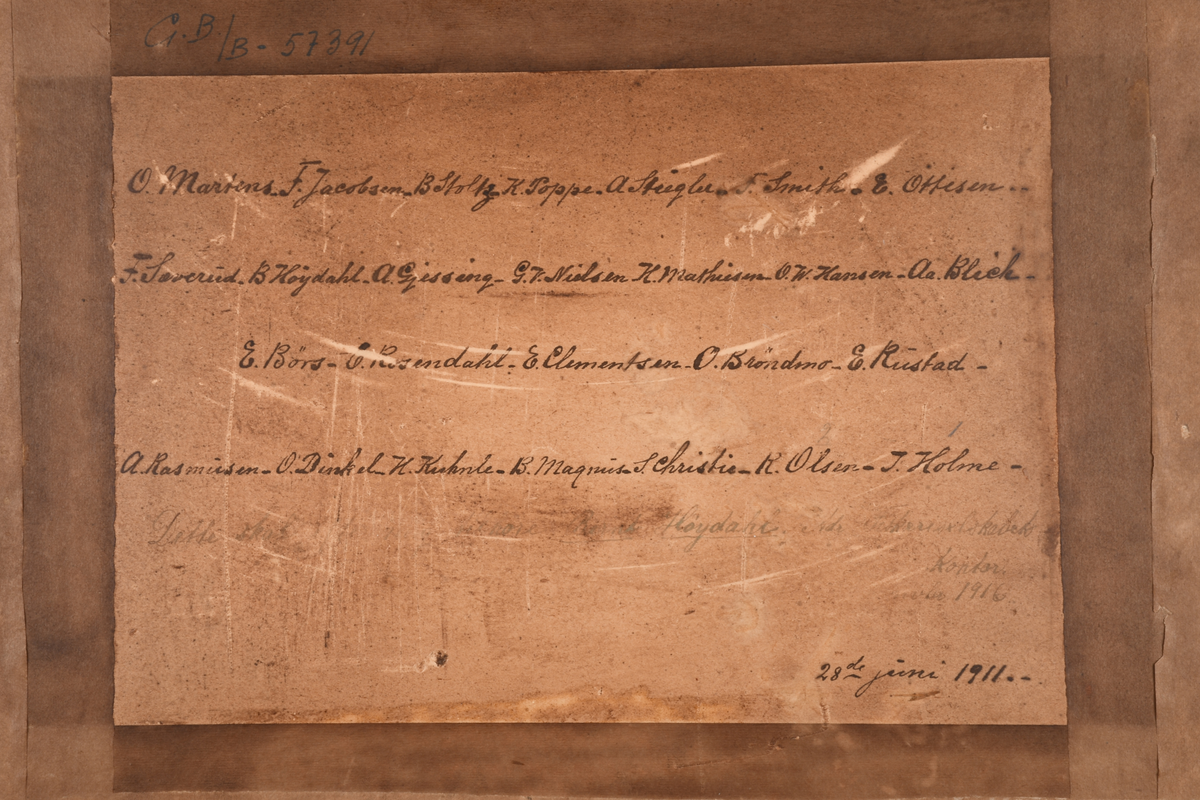 G.B/B - 57391
O. Martens - F. Jacobsen - B Stoltz K. Poppe - A Stiegler - F. Smith - E. Ottesen - -
F. Severud - B Höydahl - A. Gjessing - G.F. Nielsen K. Mathiesen - O.W. Hansen - Aa. Blich -
E. Börs - E. Rosendahl - E. Clementsen - O. Bröndmo - E. Rustad -
A. Rasmussen - O. Dinkel - H. Kuhnle - B. Magnus - S. Christie - R. Olsen - J. Holme -
Dette Höydahl
Kontor.
1916
28de juni 1911. - -